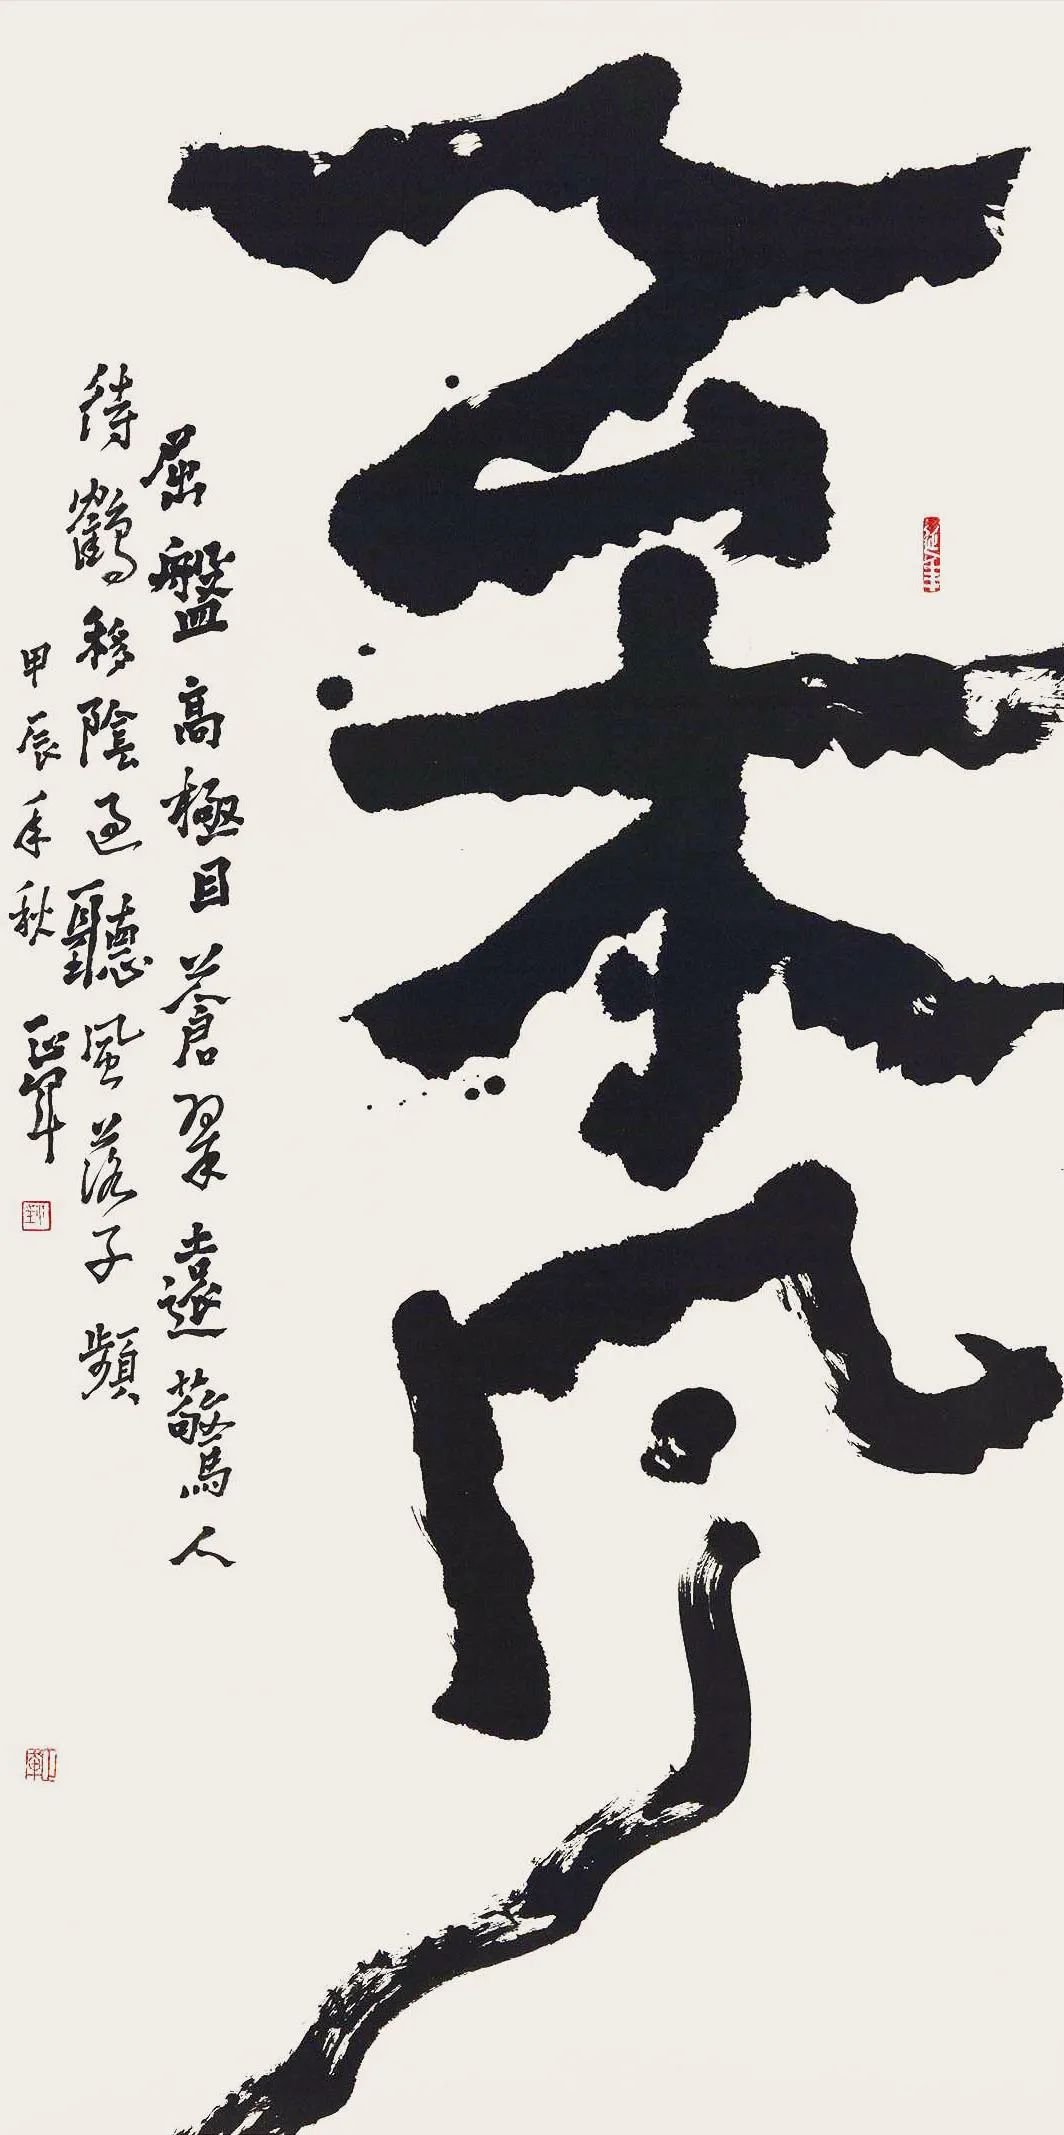 松風
屈盤高極目蒼翠遠驚人
待鶴移陰過聽風落子頻
甲辰年秋 正軍
延年